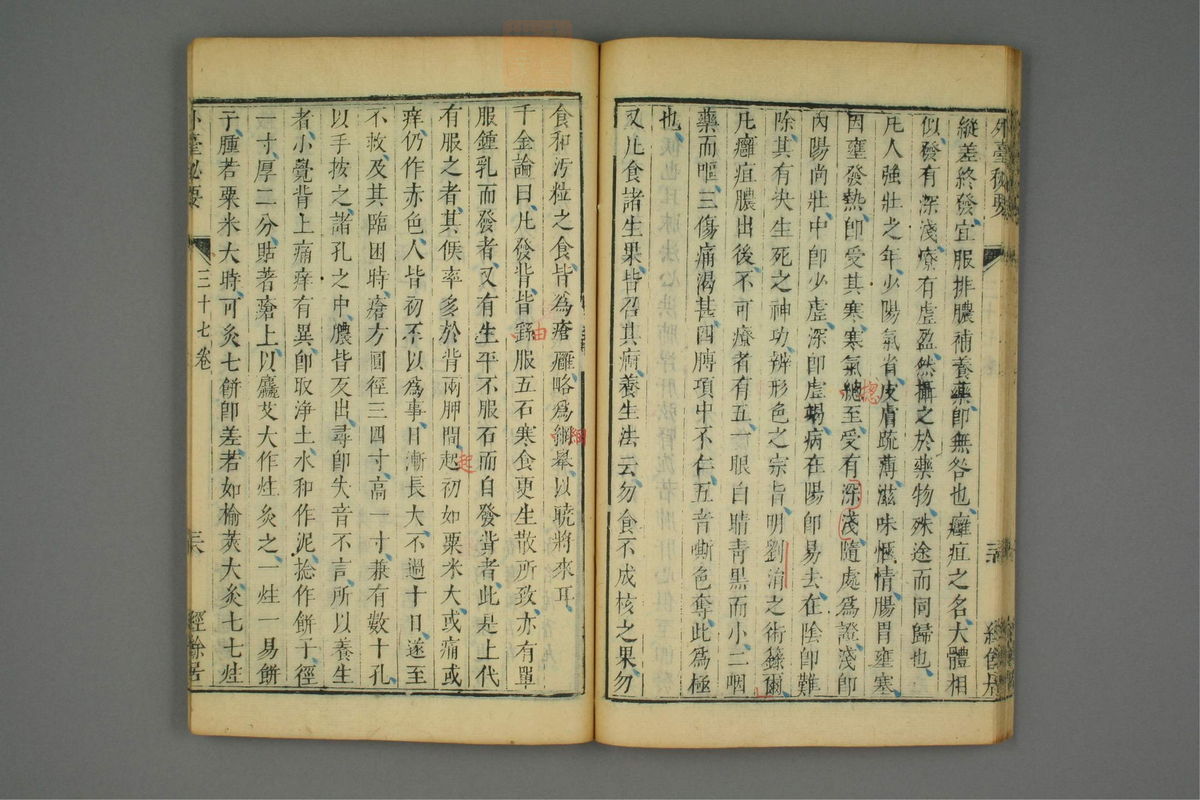 外臺祕要
縱差終發宜服排膿補養藥卽無咎也癰疽之名大體相
似發有深淺療有虛盈然攝之於藥物殊途而同歸也
凡人強壯之年少陽氣省皮膚疏薄滋味愜情腸胃壅塞
因壅發熱卽受其寒寒氣總至受有深淺隨處爲證淺卽
內陽尚壯中卽少虛深卽虛竭病在陽卽易去在陰卽難
除其有決生死之神功辨形色之宗旨明劉涓之術籙爾
凡癰疽膿出後不可療者有五一眼白睛青黑而小二咽
藥而嘔三傷痛渴甚四膊項中不仁五音嘶色奪此爲極
也
又凡食諸生果皆召其病養生法云勿食不成核之果勿
食和污粒之食皆爲瘡癰略爲綱舉以曉將來耳
千金論曰凡發背皆繇服五石寒食更生散所致亦有單
服鍾乳而發者又有生平不服石而自發背者此是上代
有服之者其候率多於背兩胛間起初如粟米大或痛或
痒仍作赤色人皆初不以爲事日漸長大不過十日遂至
不救及其臨困時瘡方圓徑三四寸高一寸兼有數十孔
以手按之諸孔之中膿皆反出尋卽失音不言所以養生
者小覺背上痛痒有異卽取淨土水和作泥捻作餅子徑
一寸厚二分貼著瘡上以麤艾大作炷灸之一炷一易餅
子腫若粟米大時可灸七餅卽差若如榆莢大灸七七炷
外臺祕要 三十七卷 三六 經餘居
由
總
綱
起